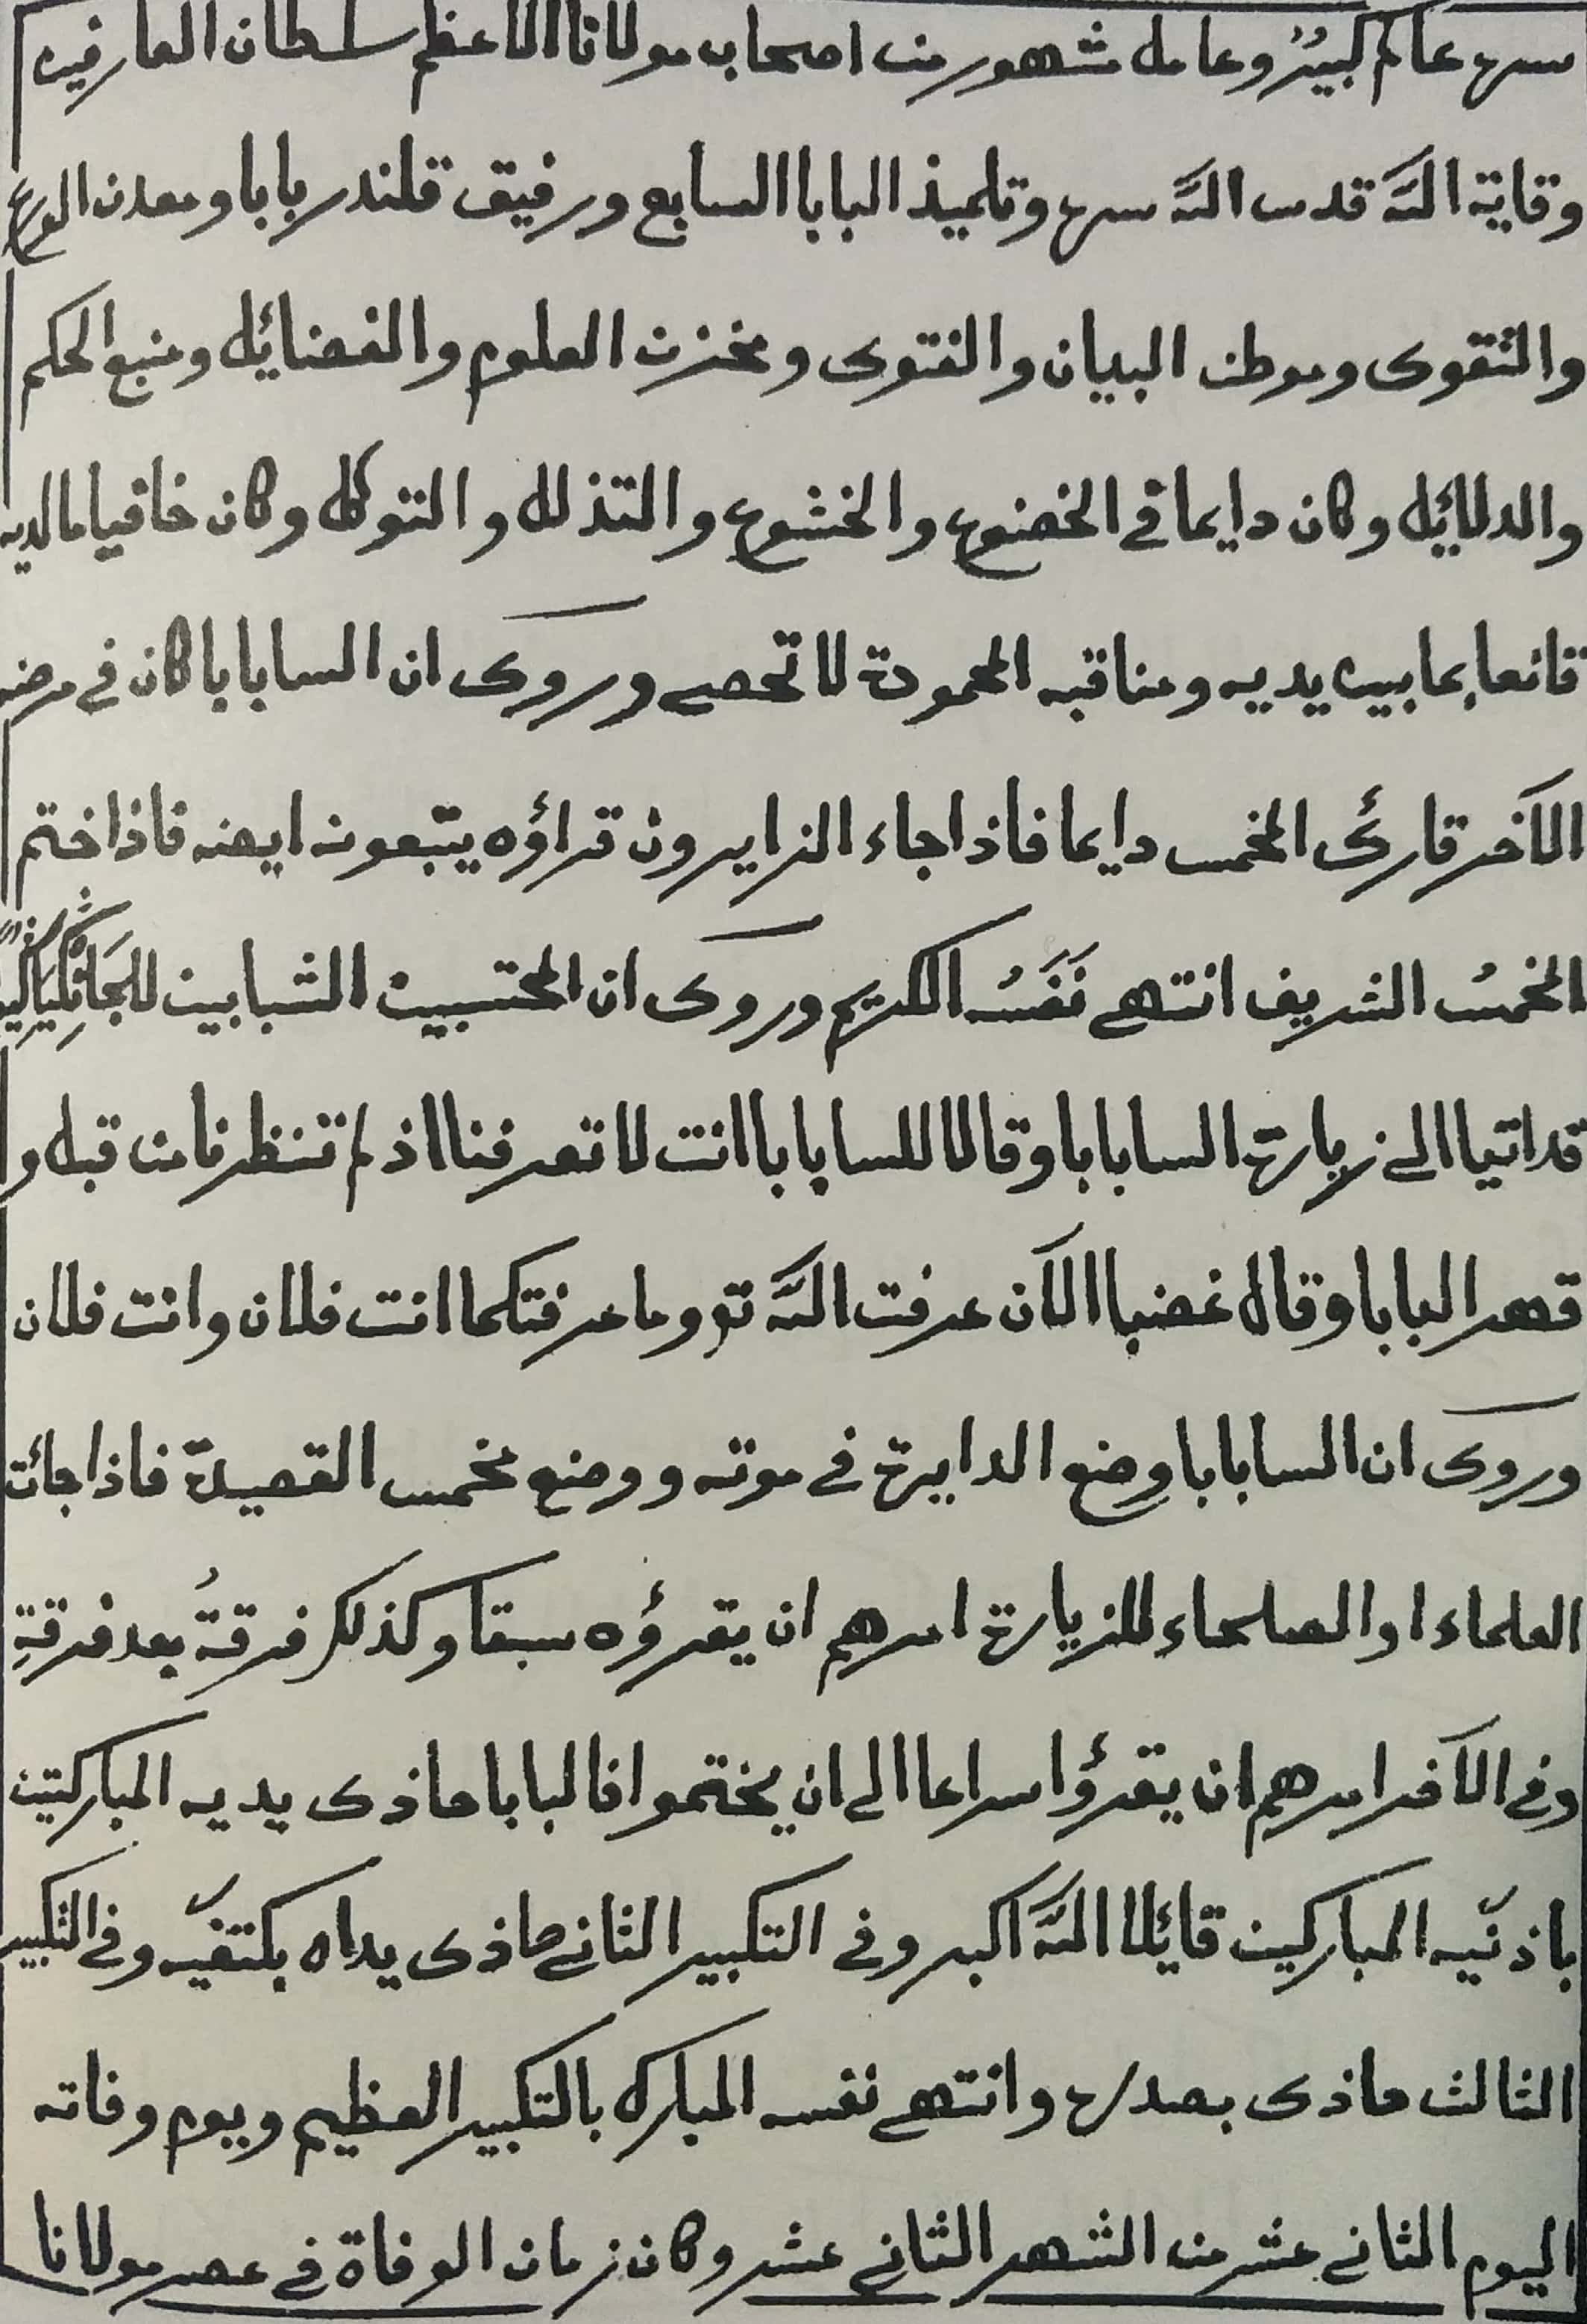 سره عالم كبيرٌ وعامل مشهور من اصحاب مولانا الاعظم سلطان العارفين
وقاية اللّه قدس اللّه سره وتلميذ البابا السابع ورفيق قلندر بابا ومعدن الورع
والتقوى وموطن البيان والفتوى ومخزن العلوم والفضائل ومنبع الحكم
والدلائل وكان دايما في الخضوع والخشوع والتذلل والتوكل وكان خافيا مالديه
قانعا بما بين يديه ومناقبه المحمودة لا تحصى وروى ان السابابا كان في مرضه
الآخر قارئ المخمس دايما فاذا جاء الزايرون قراؤه يتبعونه ايضه فاذا ختم
المخمسُ الشريف انتهى نَفَسُه الكريم وروى ان المحتسبين الشبابين
قد اتيا الى زيارة السابابا وقالا للسابابا انت لا تعرفنا اذ لم تنظرنا من قبل و
قهر البابا وقال غضبا الآن عرفت اللّه تع وما عرفتكما انت فلان وانت فلان
وروى ان السابابا وضع الدايرة في موته ووضع مخمس القصيدة فاذا جائت
العلماء او الصلحاء للزيارة امرهم ان يقرؤه سبقا وكذلك فرقةُ بعد فرقةِ
وفى الآخر امرهم ان يقرؤا سراعا الى ان يختموا فالبابا حاذى يديه المباركتين
باذنَيه المباركين قائلا اللّه اكبر وفى التكبير الثانى حاذى يداه بكتفَيه وفى التكبير
الثالث حاذى بصدره وانتهى نفسه المبارك بالتكبير العظيم ويوم وفاته
اليوم الثانى عشر من الشهر الثانى عشر وكان زمان الوفاة فى عصر مولانا